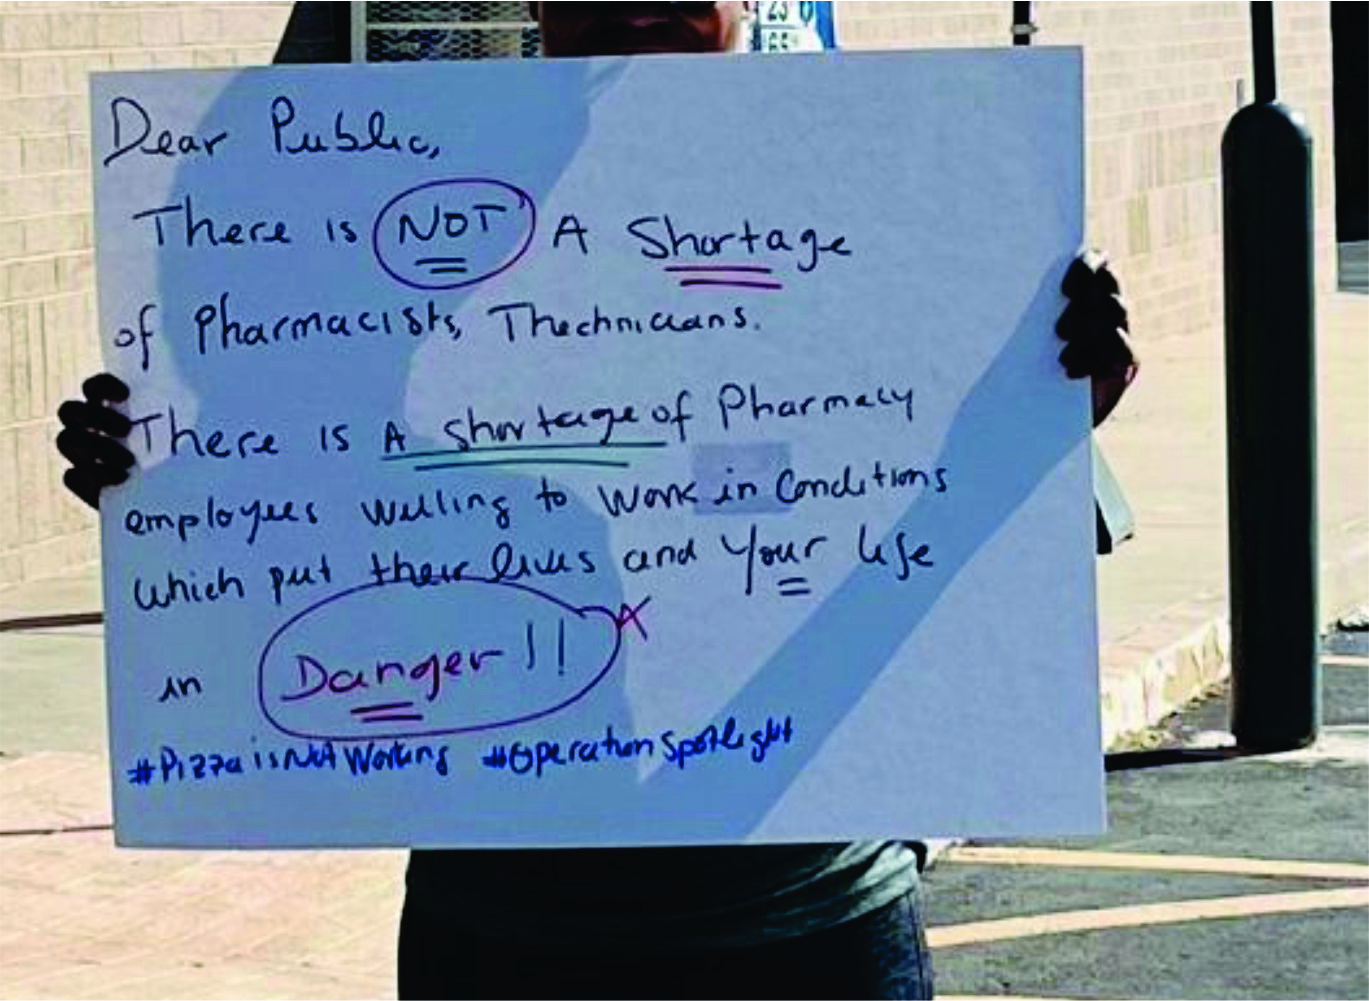 23 6
65
Dear Public,
There is NOT A Shortage
of Pharmacists, Thechnicians.
There is A shortage of Pharmacy
employees willing to work in conditions
which put their lives and your life
in Danger!!
#PizzaisNotWorking #OperationSpotlight